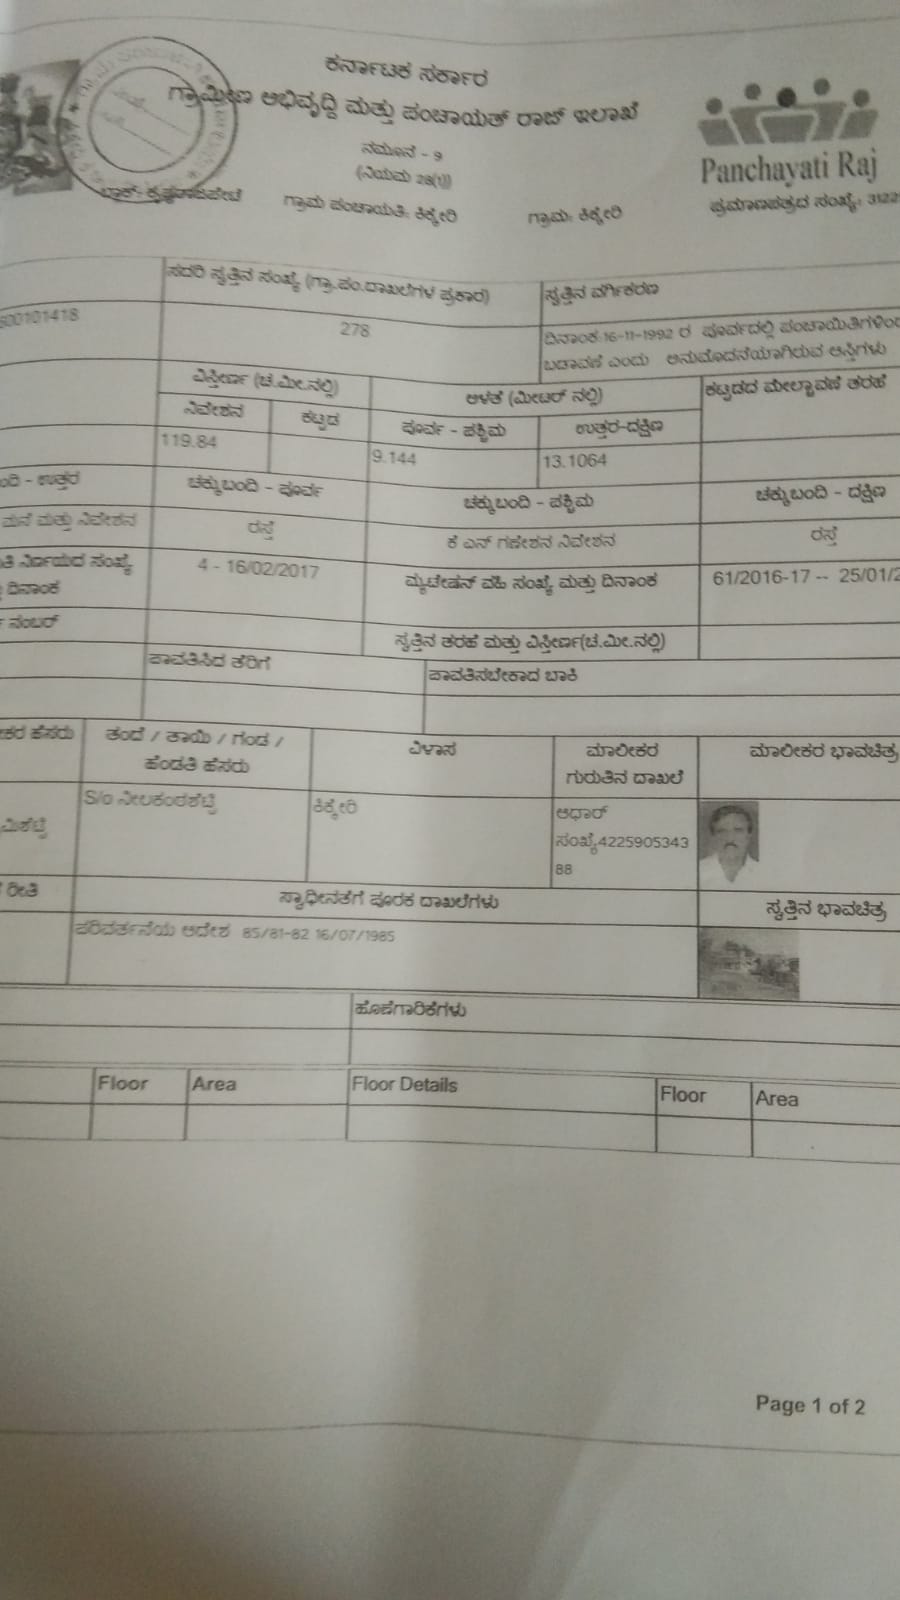 ಕರ್ನಾಟಕ ಸರ್ಕಾರ
ಗ್ರಾಮೀಣ ಅಭಿವೃದ್ಧಿ ಮತ್ತು ಪಂಚಾಯತ್ ರಾಜ್ ಇಲಾಖೆ
ನಮೂನೆ - 9
(ನಿಯಮ 28(1))
Panchayati Raj
ಗ್ರಾಮ ಪಂಚಾಯತಿ: ಕಿಕ್ಕೇರಿ ಗ್ರಾಮ: ಕಿಕ್ಕೇರಿ ಪ್ರಮಾಣಪತ್ರದ ಸಂಖ್ಯೆ: 3122
ಸದರಿ ಸ್ವತ್ತಿನ ಸಂಖ್ಯೆ (ಗ್ರಾ.ಪಂ.ದಾಖಲೆಗಳ ಪ್ರಕಾರ) ಸ್ವತ್ತಿನ ವರ್ಗೀಕರಣ
600101418 278 ದಿನಾಂಕ:16-11-1992 ರ ಪೂರ್ವದಲ್ಲಿ ಪಂಚಾಯಿತಿಗಳಿಂದ
ಬಡಾವಣೆ ಎಂದು ಅನುಮೋದನೆಯಾಗಿರುವ ಆಸ್ತಿಗಳು
ವಿಸ್ತೀರ್ಣ (ಚ.ಮೀ.ನಲ್ಲಿ) ಅಳತೆ (ಮೀಟರ್ ನಲ್ಲಿ) ಕಟ್ಟಡದ ಮೇಲ್ಛಾವಣೆ ತರಹೆ
ನಿವೇಶನ ಕಟ್ಟಡ ಪೂರ್ವ - ಪಶ್ಚಿಮ ಉತ್ತರ-ದಕ್ಷಿಣ
119.84 9.144 13.1064
ಂದಿ - ಉತ್ತರ ಚಕ್ಕುಬಂದಿ - ಪೂರ್ವ ಚಕ್ಕುಬಂದಿ - ಪಶ್ಚಿಮ ಚಕ್ಕುಬಂದಿ - ದಕ್ಷಿಣ
ಮನೆ ಮತ್ತು ನಿವೇಶನ ರಸ್ತೆ ಕೆ ಎನ್ ಗಣೇಶನ ನಿವೇಶನ ರಸ್ತೆ
ತಿ ನಿರ್ಣಯದ ಸಂಖ್ಯೆ 4 - 16/02/2017 ಮ್ಯುಟೇಷನ್ ವಹಿ ಸಂಖ್ಯೆ ಮತ್ತು ದಿನಾಂಕ 61/2016-17 -- 25/01/2
ದಿನಾಂಕ
ನಂಬರ್ ಸ್ವತ್ತಿನ ತರಹೆ ಮತ್ತು ವಿಸ್ತೀರ್ಣ(ಚ.ಮೀ.ನಲ್ಲಿ)
ಪಾವತಿಸಿದ ತೆರಿಗೆ ಪಾವತಿಸಬೇಕಾದ ಬಾಕಿ
ಕರ ಹೆಸರು ತಂದೆ / ತಾಯಿ / ಗಂಡ / ವಿಳಾಸ ಮಾಲೀಕರ ಮಾಲೀಕರ ಭಾವಚಿತ್ರ
ಹೆಂಡತಿ ಹೆಸರು ಗುರುತಿನ ದಾಖಲೆ
S/o ನೀಲಕಂಠಶೆಟ್ಟಿ ಕಿಕ್ಕೇರಿ ಆಧಾರ್
ಮಿಶೆಟ್ಟಿ ಸಂಖ್ಯೆ4225905343
88
ರೀತಿ ಸ್ವಾಧೀನತೆಗೆ ಪೂರಕ ದಾಖಲೆಗಳು ಸ್ವತ್ತಿನ ಭಾವಚಿತ್ರ
ಪರಿವರ್ತನೆಯ ಆದೇಶ 85/81-82 16/07/1985
ಹೊಣೆಗಾರಿಕೆಗಳು
Floor Area Floor Details Floor Area
Page 1 of 2